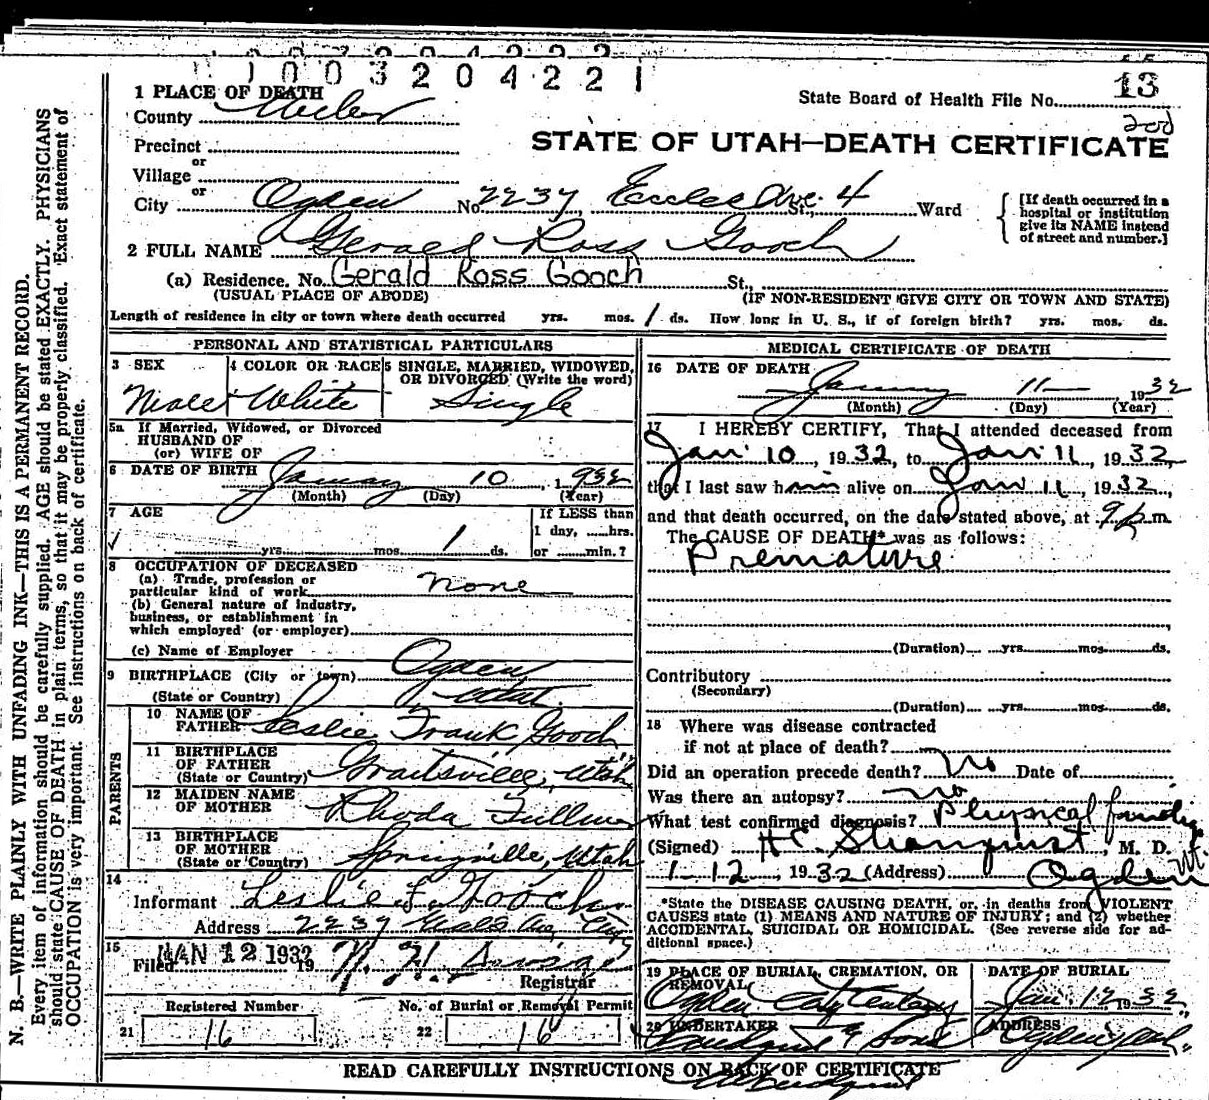 1003204221
13
State Board of Health File No.
200
1 PLACE OF DEATH
County Weber
STATE OF UTAH—DEATH CERTIFICATE
Precinct
or
Village
or
City Ogden No. 2237 Eccles Ave. St., 4 Ward
[If death occurred in a hospital or institution give its NAME instead of street and number.]
2 FULL NAME Gerald Ross Gooch
(a) Residence. No. Gerald Ross Gooch St.,
(USUAL PLACE OF ABODE) (IF NON-RESIDENT GIVE CITY OR TOWN AND STATE)
Length of residence in city or town where death occurred yrs. mos. 1 ds. How long in U. S., if of foreign birth? yrs. mos. ds.
PERSONAL AND STATISTICAL PARTICULARS
3 SEX 4 COLOR OR RACE 5 SINGLE, MARRIED, WIDOWED, OR DIVORCED (Write the word)
Male White Single
5a If Married, Widowed, or Divorced
HUSBAND OF
(or) WIFE OF
6 DATE OF BIRTH January 10, 1932
(Month) (Day) (Year)
7 AGE If LESS than
1 day, ......hrs.
yrs. mos. 1 ds. or ......min.?
8 OCCUPATION OF DECEASED
(a) Trade, profession or
particular kind of work none
(b) General nature of industry,
business, or establishment in
which employed (or employer)
(c) Name of Employer
9 BIRTHPLACE (City or town) Ogden
(State or Country) Utah
PARENTS
10 NAME OF
FATHER Leslie Frank Gooch
11 BIRTHPLACE
OF FATHER
(State or Country) Grantsville, Utah
12 MAIDEN NAME
OF MOTHER Rhoda Fullmer
13 BIRTHPLACE
OF MOTHER
(State or Country) Springville, Utah
14
Informant Leslie F. Gooch
Address 2237 Eccles Ave,
15
Filed JAN 12 1932 19
Registrar
Registered Number No. of Burial or Removal Permit
21 16 22 16
MEDICAL CERTIFICATE OF DEATH
16 DATE OF DEATH
January 11 1932
(Month) (Day) (Year)
17 I HEREBY CERTIFY, That I attended deceased from
Jan 10, 1932, to Jan 11, 1932,
that I last saw him alive on Jan 11, 1932,
and that death occurred, on the date stated above, at 9 p.m.
The CAUSE OF DEATH* was as follows:
Premature
(Duration) yrs. mos. ds.
Contributory
(Secondary)
(Duration) yrs. mos. ds.
18 Where was disease contracted
if not at place of death?
Did an operation precede death? No Date of
Was there an autopsy? no
What test confirmed diagnosis? Physical findings
(Signed) H.C. Stranquist, M. D.
1-12, 1932 (Address) Ogden Ut.
*State the DISEASE CAUSING DEATH, or, in deaths from VIOLENT
CAUSES state (1) MEANS AND NATURE OF INJURY; and (2) whether
ACCIDENTAL, SUICIDAL OR HOMICIDAL. (See reverse side for ad-
ditional space.)
19 PLACE OF BURIAL, CREMATION, OR REMOVAL DATE OF BURIAL
Ogden City Cemetery Jan. 12 1932
20 UNDERTAKER ADDRESS
& Sons Ogden
READ CAREFULLY INSTRUCTIONS ON BACK OF CERTIFICATE
N. B.—WRITE PLAINLY WITH UNFADING INK—THIS IS A PERMANENT RECORD.
Every item of information should be carefully supplied. AGE should be stated EXACTLY. PHYSICIANS
should state CAUSE OF DEATH in plain terms, so that it may be properly classified. Exact statement of
OCCUPATION is very important. See instructions on back of certificate.